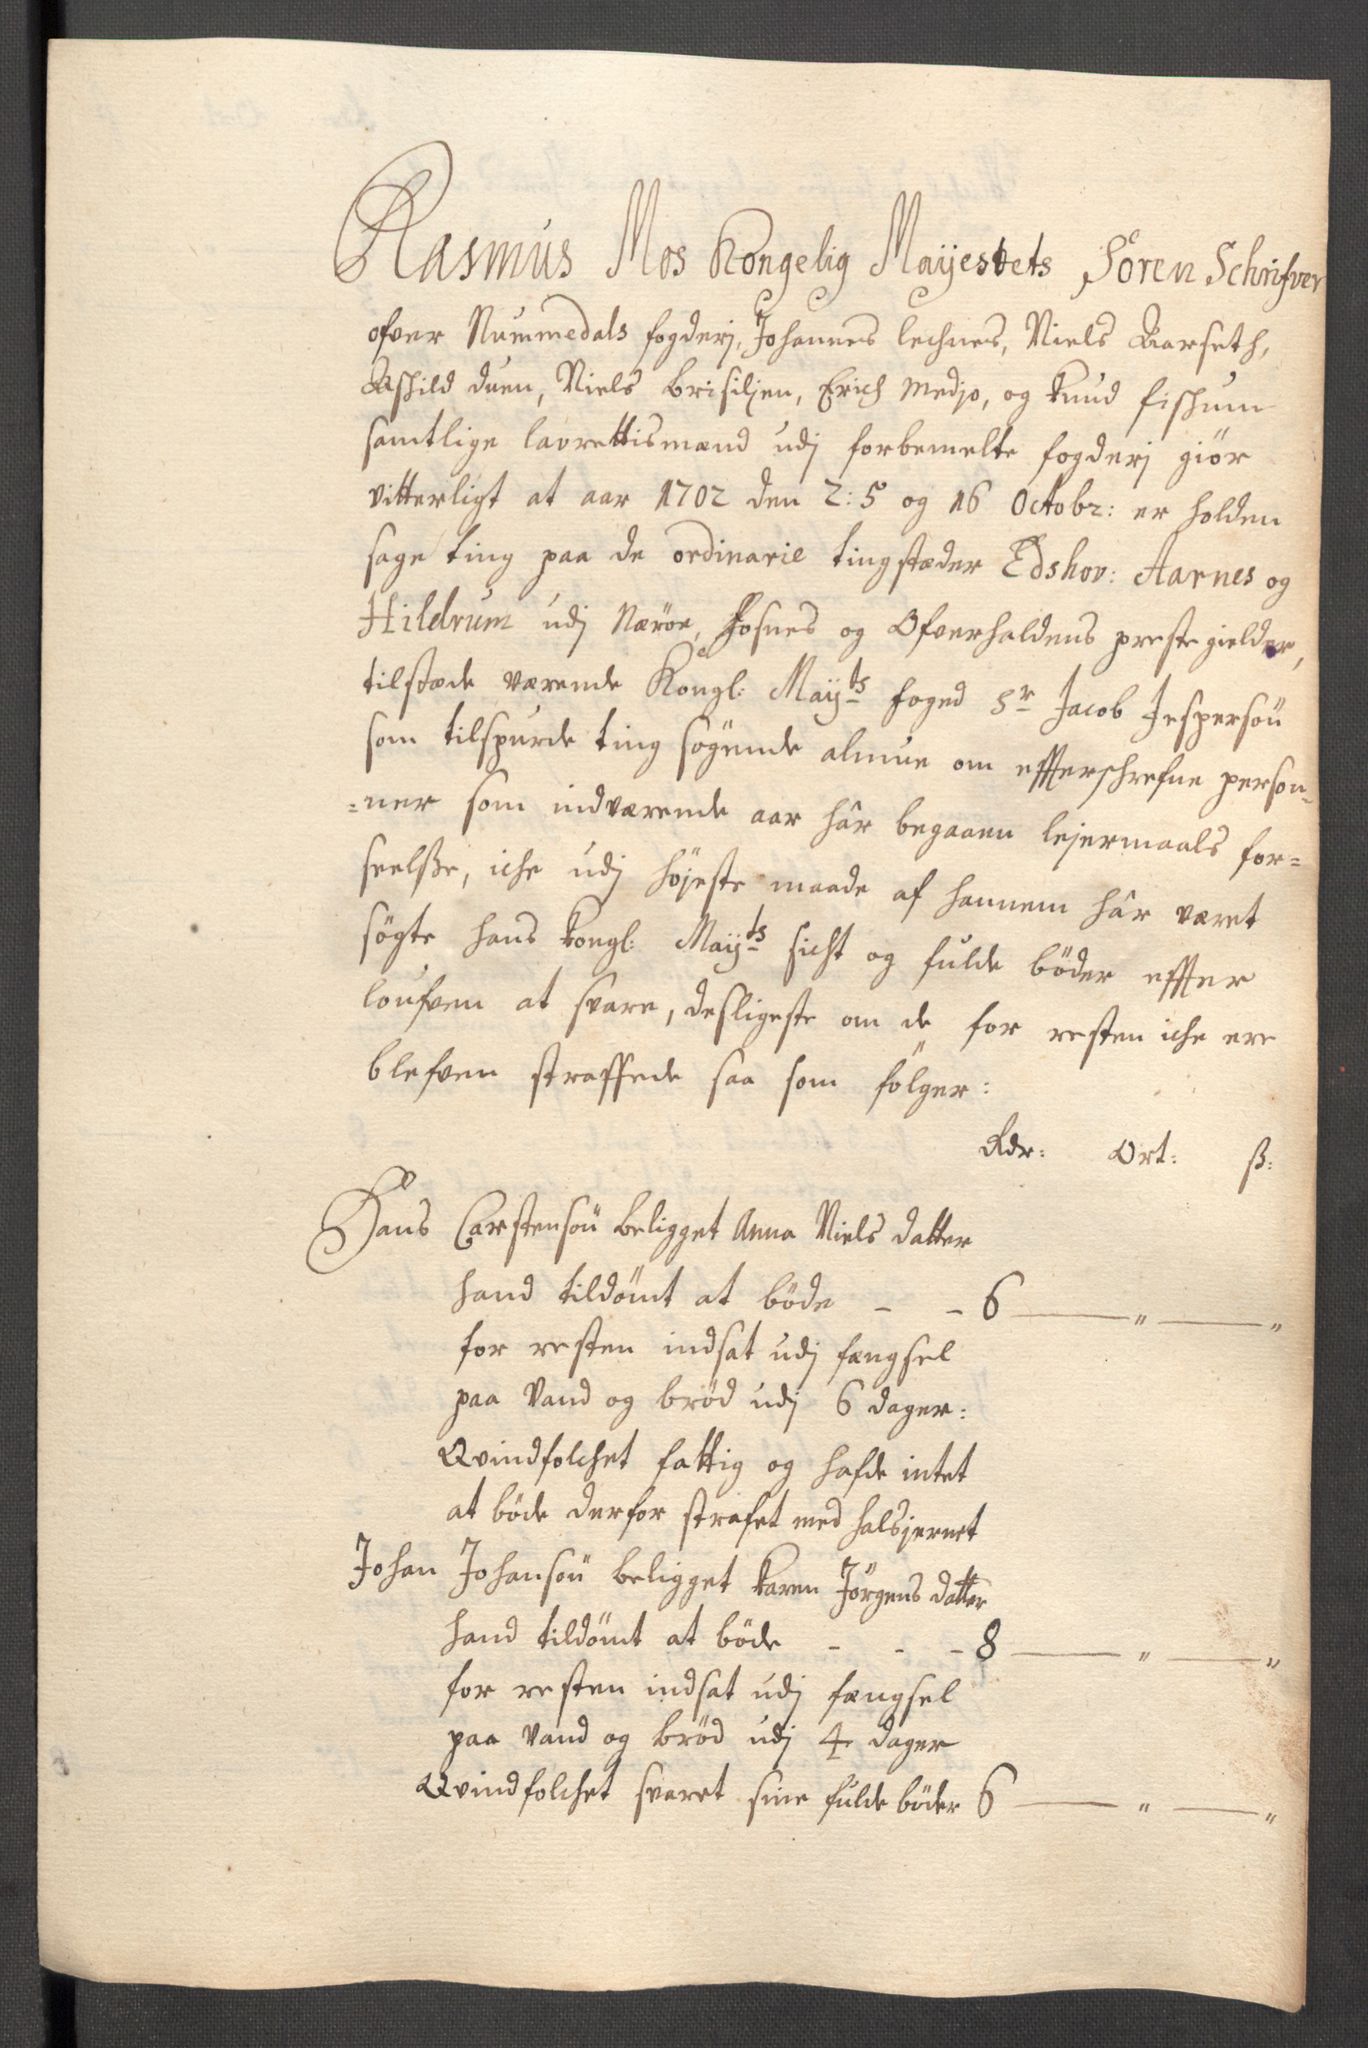 Rasmus Mos Kongelig Maÿestets Soren Schrifver
ofver Nummedals fogderj, Johannes Lechnes, Niels Aarseth,
Aschild duen, Niels Brisiljen, Erich Medjo, og Knud fischum
samtlige lavrettismænd udj forbemelte fogderj giör
vitterligt at aar 1702 den 2: 5 og 16 Octobr: er holden
sage ting paa de ordinarie tingstæder Edshov: Aarnes og
Hildrum udj Næröe, Fosnes og Ofverhaldens præste gielder,
tilstæde værende Kongl: Maÿts foged Sr Jacob Jespersön
som tilspurde ting sögende almue om effterschrefne person-
=ner som indværende aar hâr begaaen lejermaals for=
seelsse, iche udj höjeste maade af hannem hâr været
sögte hans kongl: Maÿts sicht og fulde böder effter
loufven at svare, desligeste om de for resten iche ere
blefven straffede saa som fölger:
Rdr: Ort: ß:
Hans Carstensön beligget Anna Niels datter
hand tildömt at böde - - 6 — " — "
for resten indsat udj fængsel
paa vand og bröd udj 6 dager:
Qvindfolchet fattig og hafde intet
at böde derfor strafet med halsjernet
Johan Johansön beligget Karen Jörgens datter
hand tildömt at böde - - - 8 — " — "
for resten indsat udj fængsel
paa vand og bröd udj 4 dager
Qvindfolchet svaret sine fulde böder 6 — " — "